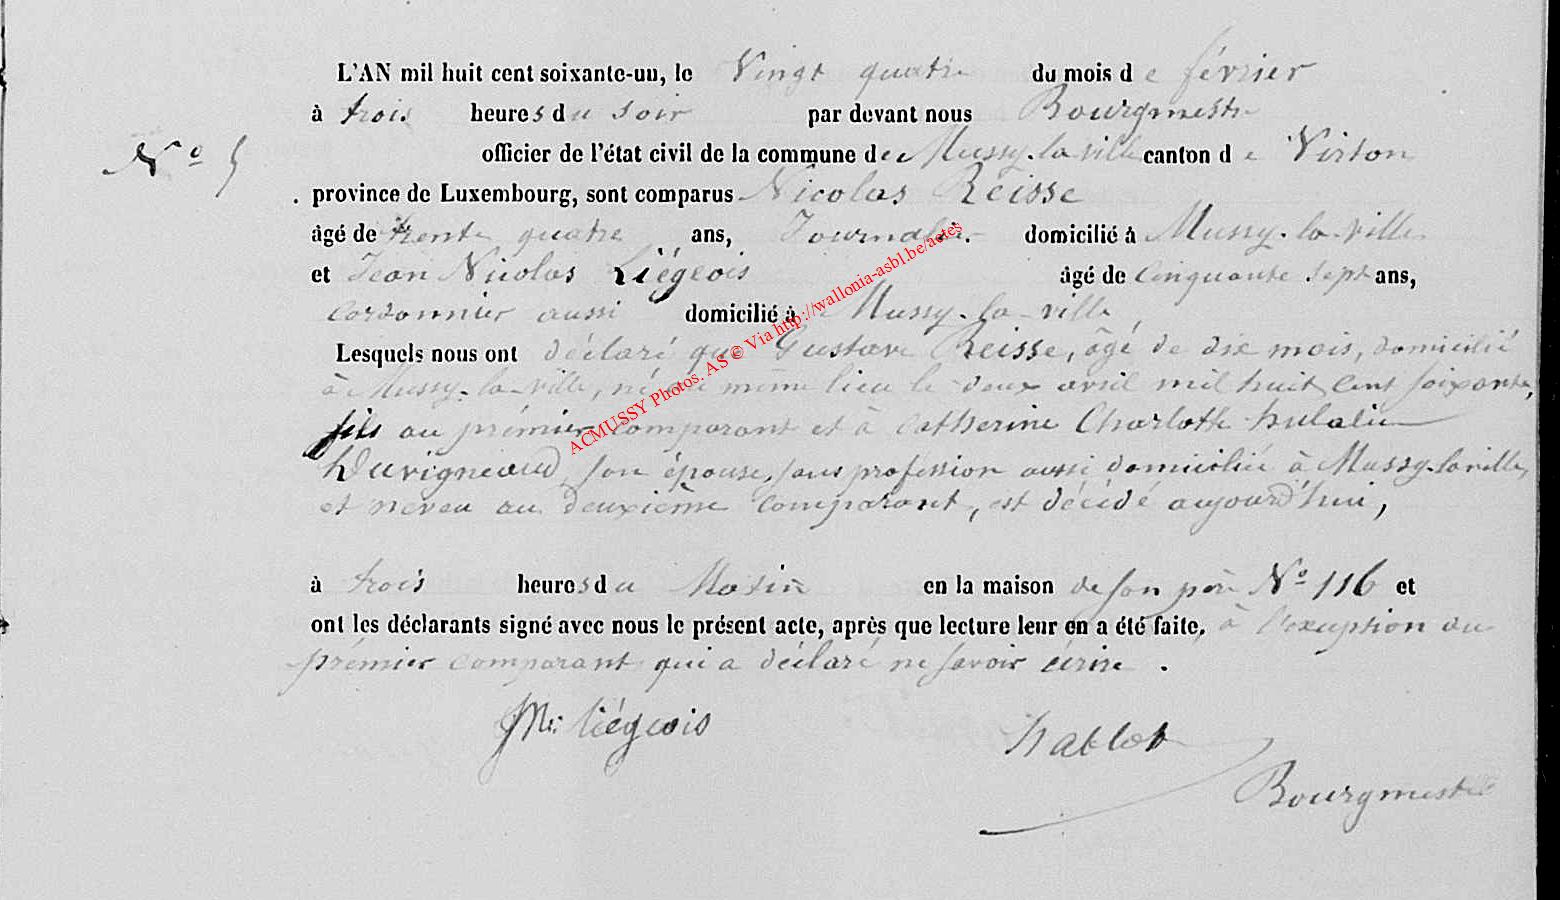 L'AN mil huit cent soixante-un, le Vingt quatre du mois de février
à trois heures du soir par devant nous Bourgmestre
N° 5
officier de l'état civil de la commune de Mussy-la-ville canton de Virton
province de Luxembourg, sont comparus Nicolas Reisse
âgé de trente quatre ans, Journalier domicilié à Mussy-la-ville
et Jean Nicolas Liégeois âgé de cinquante sept ans,
cordonnier aussi domicilié à Mussy-la-ville
Lesquels nous ont déclaré que Gustave Reisse, âgé de dix mois, domicilié
à Mussy-la-ville, né même lieu le deux avril mil huit cent soixante,
fils au prémier comparant et à Catherine Charlotte
Duvigneaud, son épouse, sans profession aussi domiciliée à Mussy-la-ville,
et neveu au deuxième comparant, est décédé aujourd'hui,
à trois heures du Matin en la maison de son père N° 116 et
ont les déclarants signé avec nous le présent acte, après que lecture leur en a été faite, à l'exception du
prémier comparant qui a déclaré ne savoir écrire.
JN Liégeois
Bourgmestre
ACMUSSY Photos. AS © Via http://wallonia-asbl.be/actes